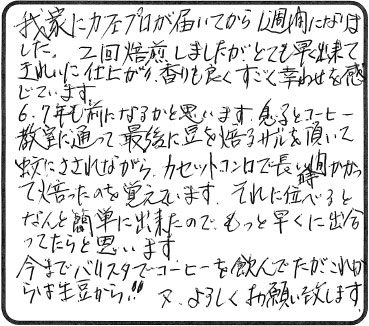 我家にカフェプロが届いてから1週間になりま
した。 2回焙煎しましたが、とても早く出来て
きれいに仕上がり、香りも良く すごく幸わせを感
じています。
6、7年も前になるかと思います。息子とコーヒー
教室に通って 最後に豆を焙るザルを頂いて
蚊にさされながら、カセットコンロで長い時間かかっ
て焙ったのを覚えています。 それに比べると
なんと簡単に出来たので、もっと早くに出合
ってたらと思います
今までバリスタでコーヒーを飲んでたがこれか
らは生豆から!! 又、よろしくお願い致します。